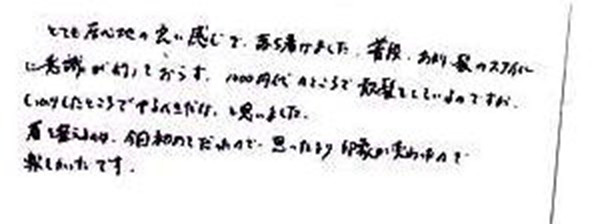 とても居心地の良い感じで、落ち着けました。普段、あまり髪のスタイル
に意識が行っておらず、1000円代のところで散髪をしているのですが、
しっかりしたところでやるべきだな、と思いました。
眉を整えるのは、今日初めてだったので、思ったより印象が変わったので
楽しかったです。